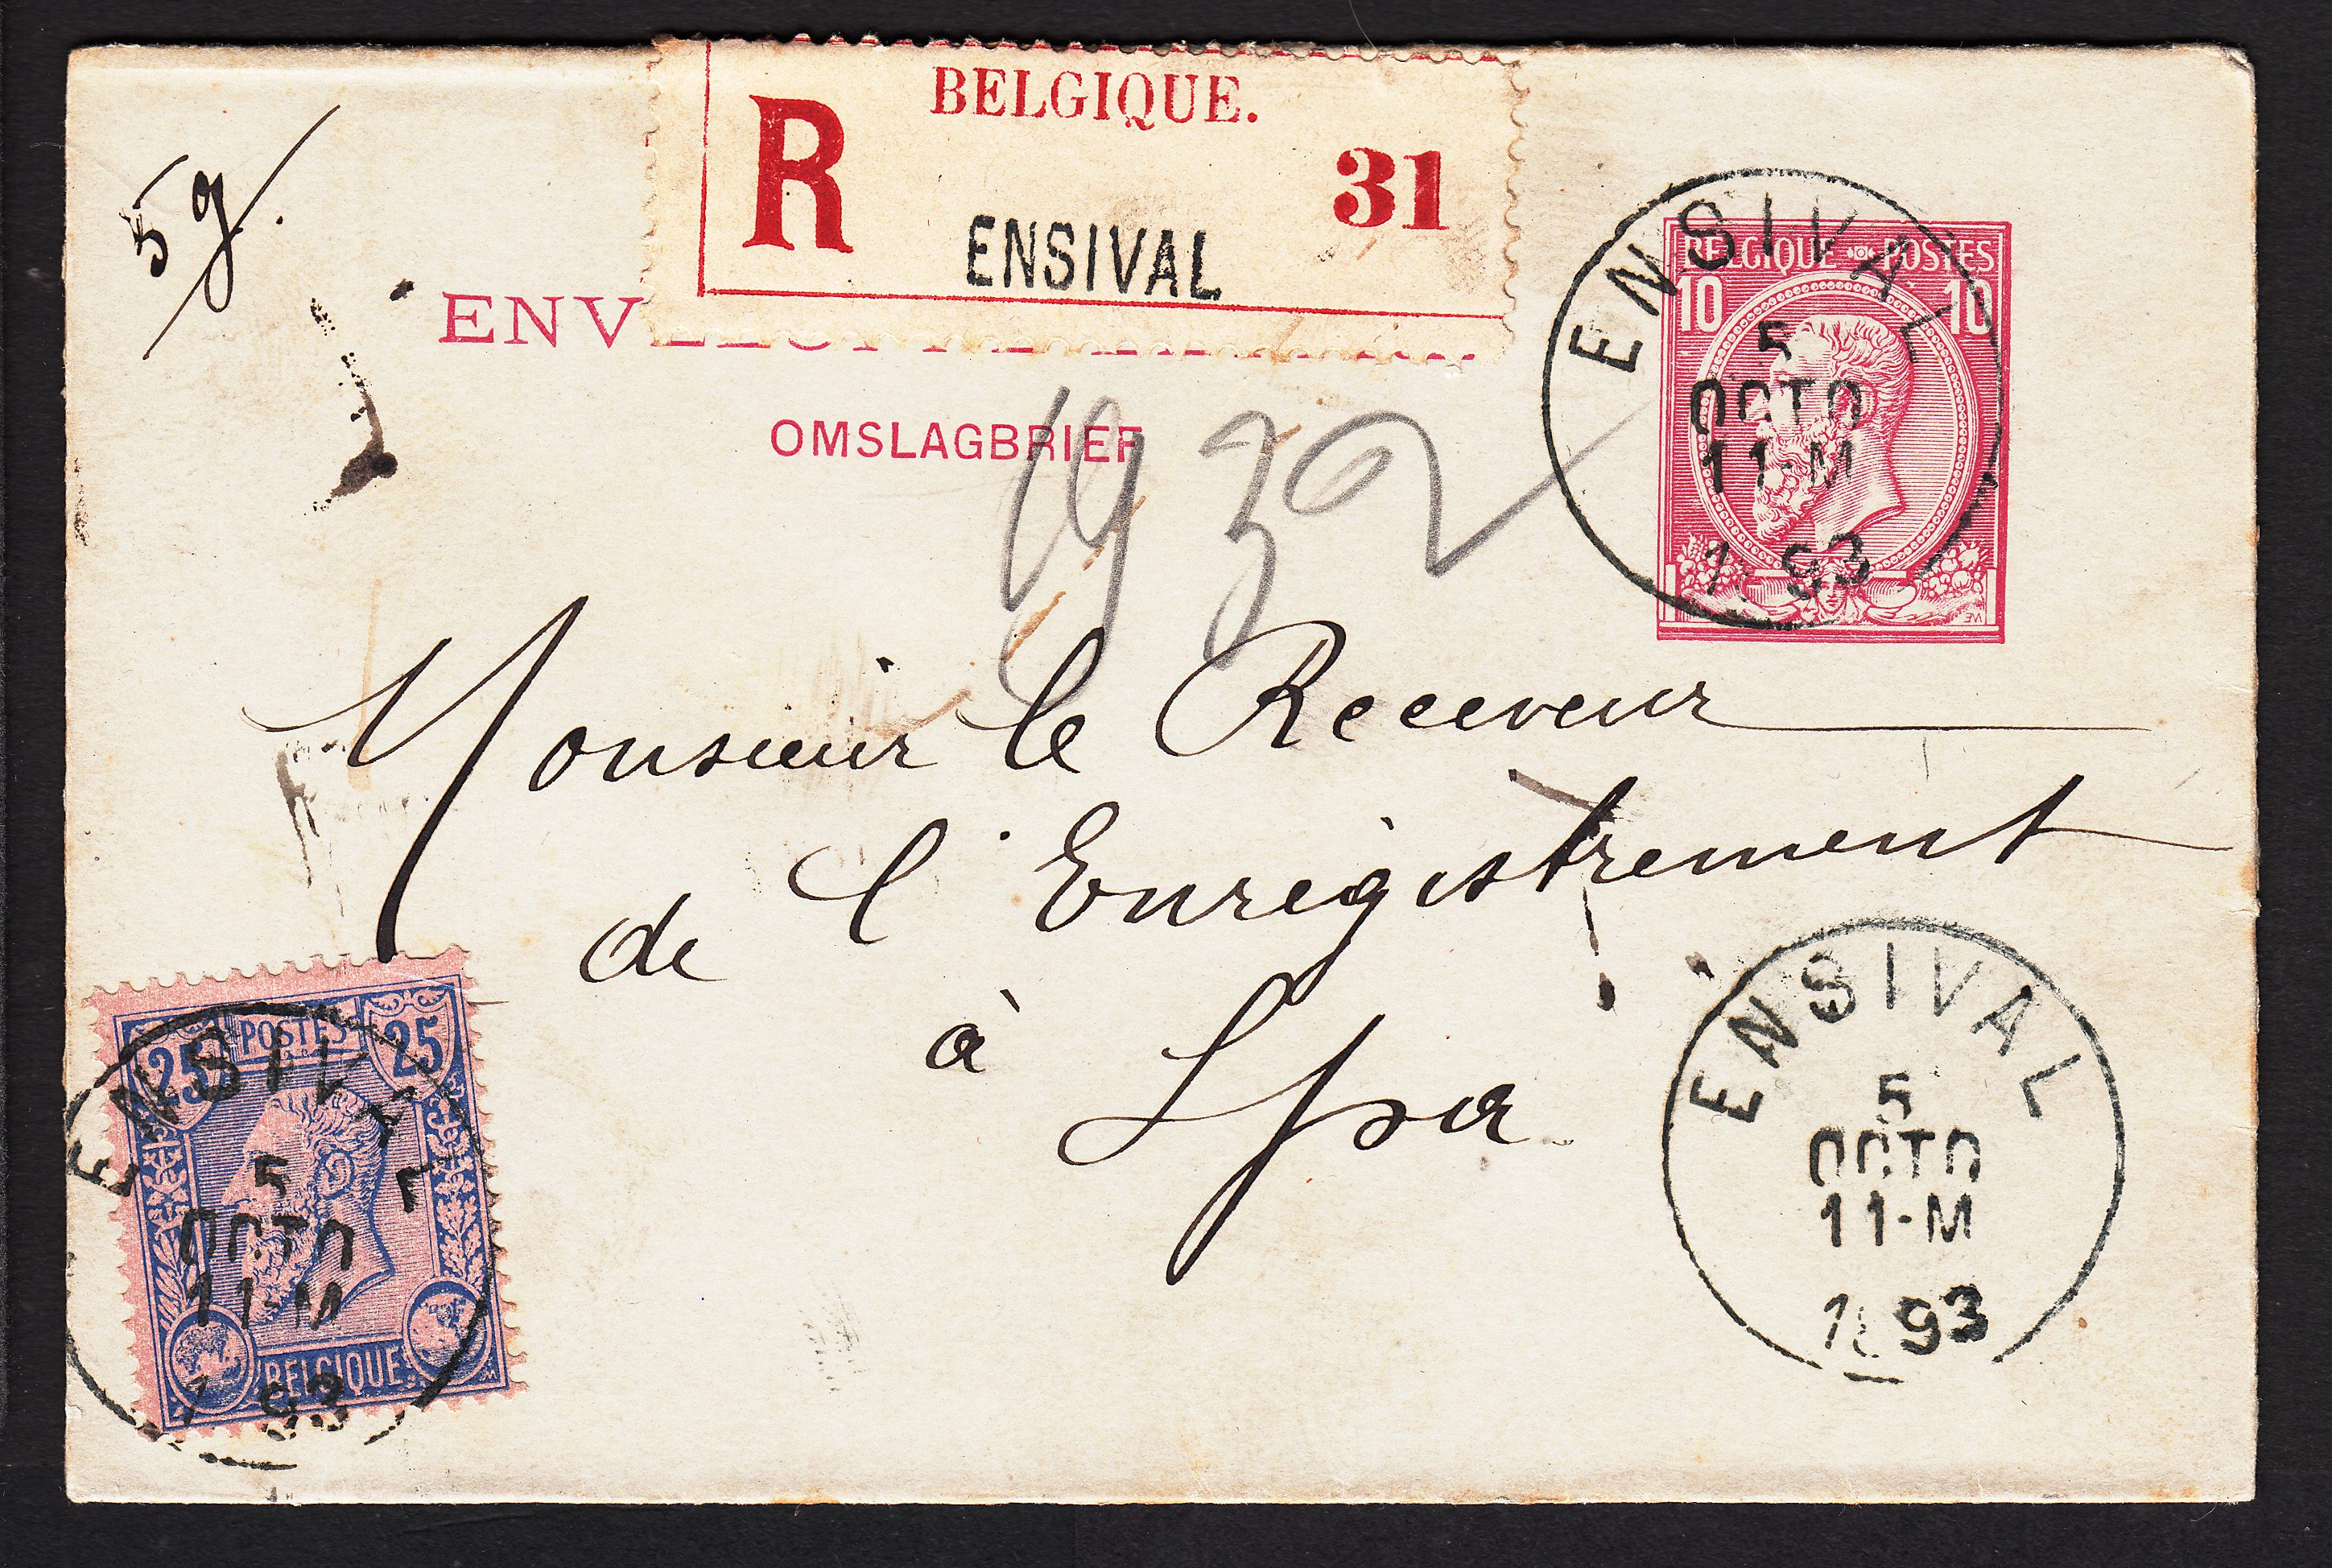 5 g.
BELGIQUE.
R
31
ENSIVAL
ENV
OMSLAGBRIEF
BELGIQUE POSTES
10 10
ENSIVAL
5
OCTO
11-M
93
Monsieur le Receveur
de l'Enregistrement
à Spa
25 POSTES 25
BELGIQUE
ENSIVAL
5
OCTO
11-M
93
ENSIVAL
5
OCTO
11-M
1893